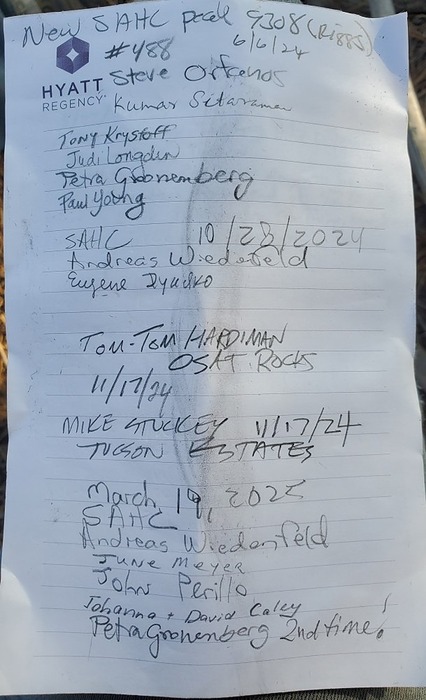 New SAHC peak 9308 (Riggs)
#488 6/6/24
HYATT
REGENCY
Steve Orfanos
Kumar Sitaraman
Tony Krystoff
Judi Longdin
Petra Gronemberg
Paul Young
SAHC 10/28/2024
Andreas Wiedenfeld
Eugene Dyudko
TOM-TOM HARDIMAN
OSAT ROCKS
11/17/24
MIKE STUCKEY 11/17/24
TUCSON ESTATES
March 19, 2025
SAHC
Andreas Wiedenfeld
June Meyer
John Perillo
Johanna + David Caley
Petra Gronemberg 2nd time!